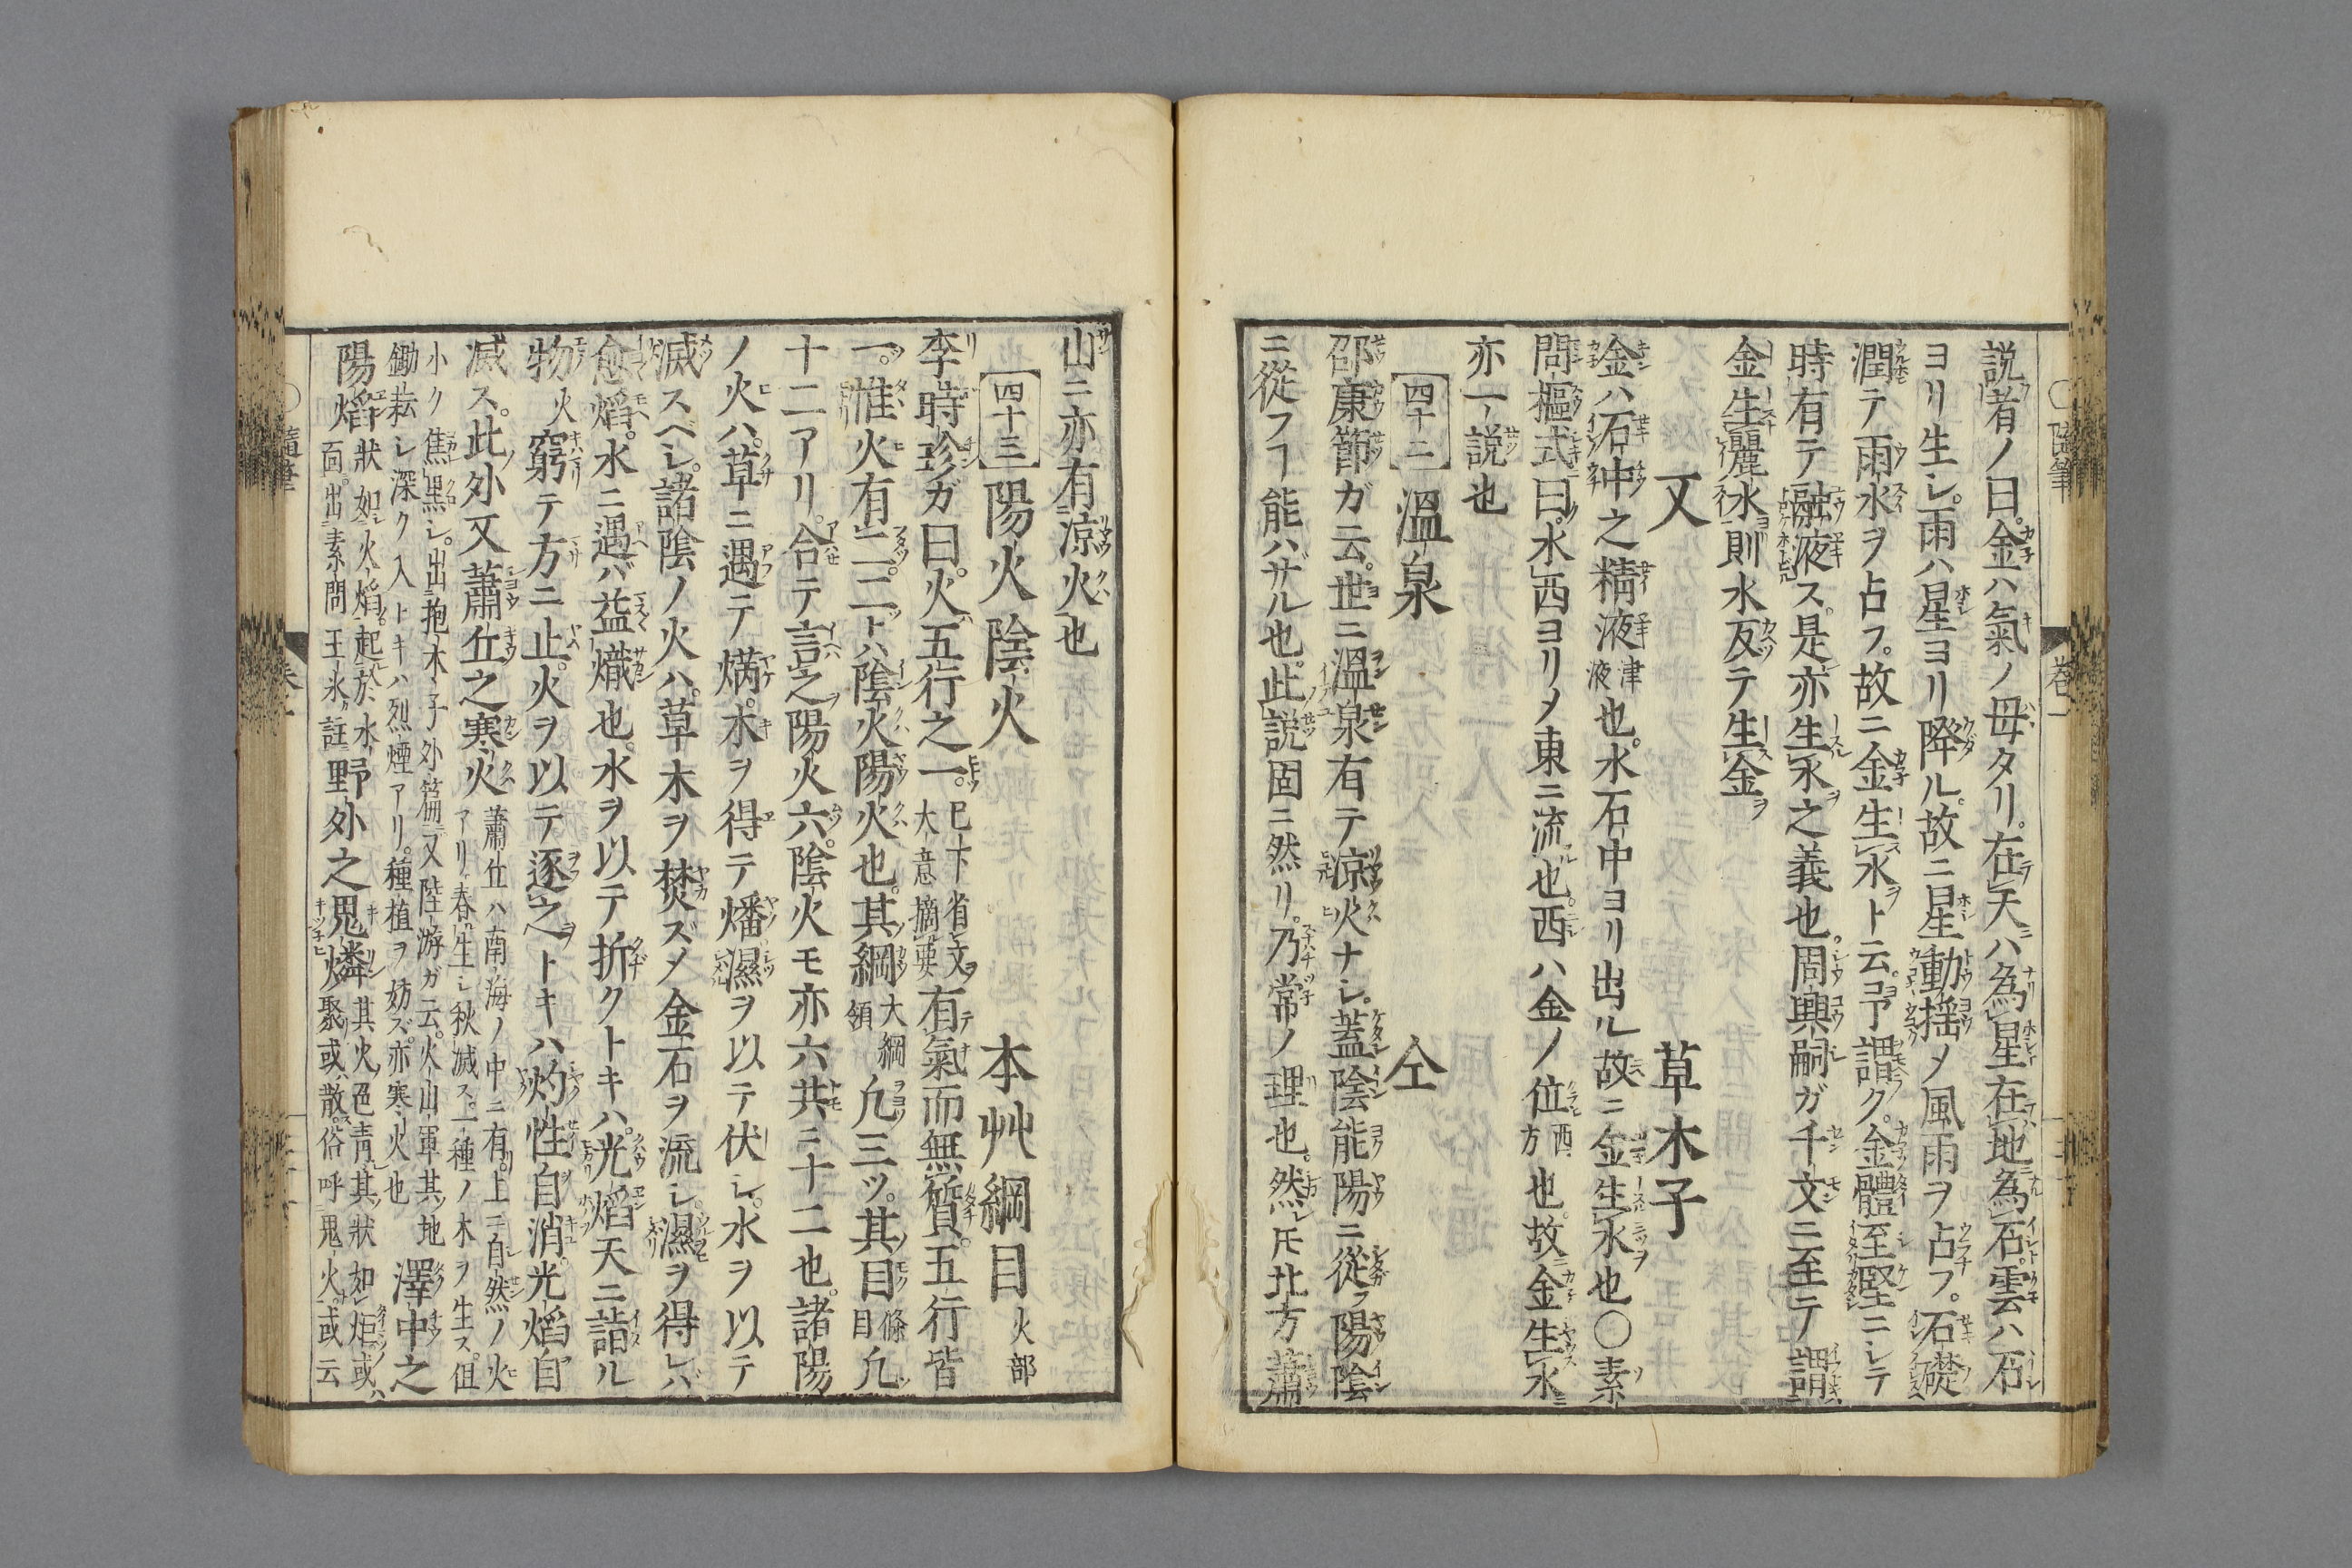 説者ノ曰。金ハ氣ノ母タリ。在天ハ為星在地為石。雲ハ石
ヨリ生シ。雨ハ星ヨリ降ル。故ニ星動揺メ風雨ヲ占フ。石礎
潤テ雨水ヲ占フ。故ニ金生水ト云。予謂ク。金體至堅ニシテ
時有テ融液ス。是亦生水之義也。周興嗣ガ千文ニ至テ謂
金生麗水則水反テ生金
又 草木子
金ハ石中之精液津液也。水石中ヨリ出ル故ニ金生水也○素
問樞式曰。水西ヨリメ東ニ流也。西ハ金ノ位西方也。故金生水
亦一説也
四十二 溫泉 仝
邵康節ガ云。世ニ溫泉有テ涼火ナシ。蓋陰能陽ニ從フ陽陰
ニ從フヿ能ハザル也。此説固ニ然リ。乃常ノ理也。然レ𪜈北方蕭
山ニ亦有涼火也
四十三 陽火陰火 本艸綱目火部
李時珍ガ曰。火五行之一。已下省文大意摘要有氣而無質。五行皆
一。惟火有二。二トハ陰火陽火也。其綱大綱領凢三ツ。其目條目凢
十二アリ。合テ言之陽火六。陰火モ亦六共ニ十二也。諸陽
ノ火ハ。草ニ遇テ焫。木ヲ得テ燔濕ヲ以テ伏シ。水ヲ以テ
滅スベシ。諸陰ノ火ハ。草木ヲ焚ズメ金石ヲ流シ。濕ヲ得レバ
愈焰。水ニ遇バ益熾也。水ヲ以テ折クトキハ。光焰天ニ詣ル
物火窮テ方ニ止。火ヲ以テ逐之トキハ灼性自消。光焰自
滅ス。此外又蕭丘之寒火蕭丘ハ南海ノ中ニ有。上ニ自然ノ火アリ。春生シ秋滅ス。一種ノ木ヲ生ス。但
小ク焦黒シ。出抱木子外篇又陸游ガ云。火山軍其地鋤耘シ深ク入トキハ烈煙アリ。種植ヲ妨ズ。亦寒火也澤中之
陽焰狀如火焰。起於水面。出素問王氷註野外之鬼燐其火色青其狀如炬或聚或散。俗呼鬼火。或云